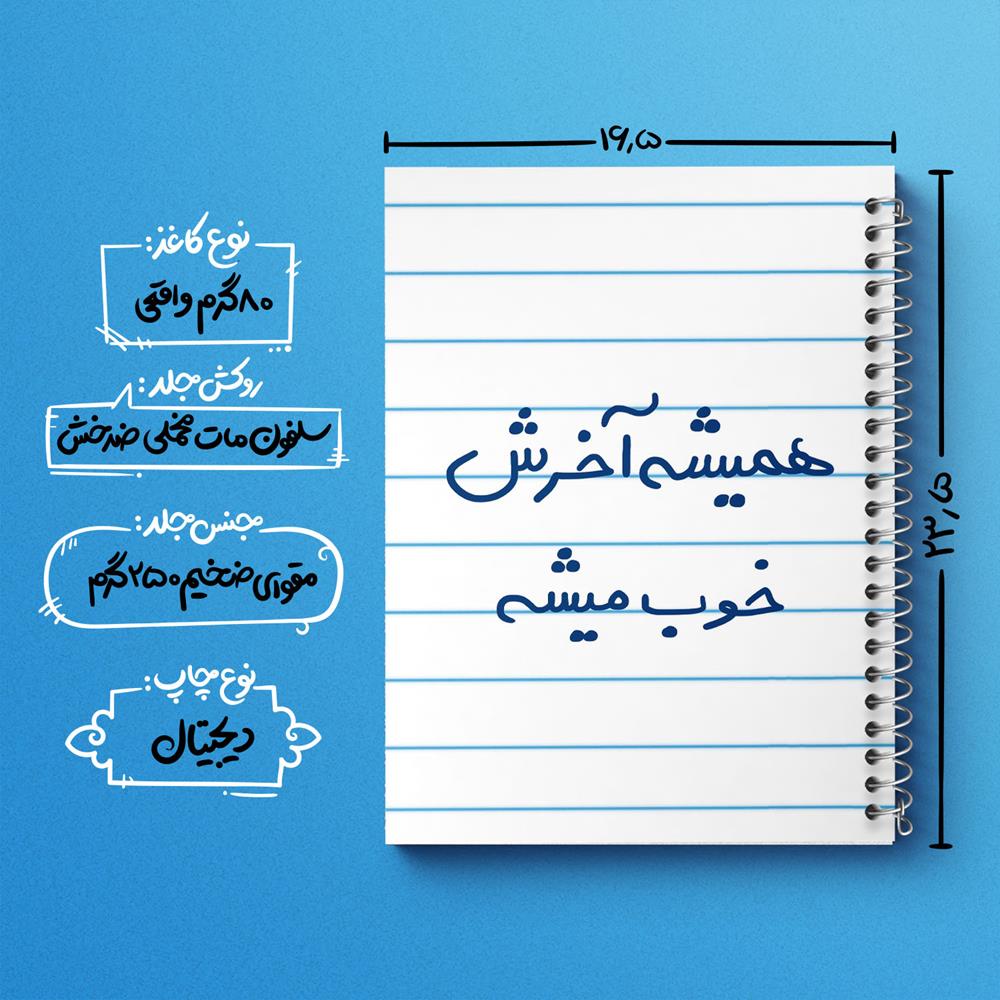 ۱۶٫۵
۲۳٫۵
همیشه آخرش
خوب میشه
نوع کاغذ:
۸۰ گرم واقعی
روکش جلد:
سلفون مات مخملی ضدخش
جنس جلد:
مقوای ضخیم ۲۵۰ گرم
نوع چاپ:
دیجیتال